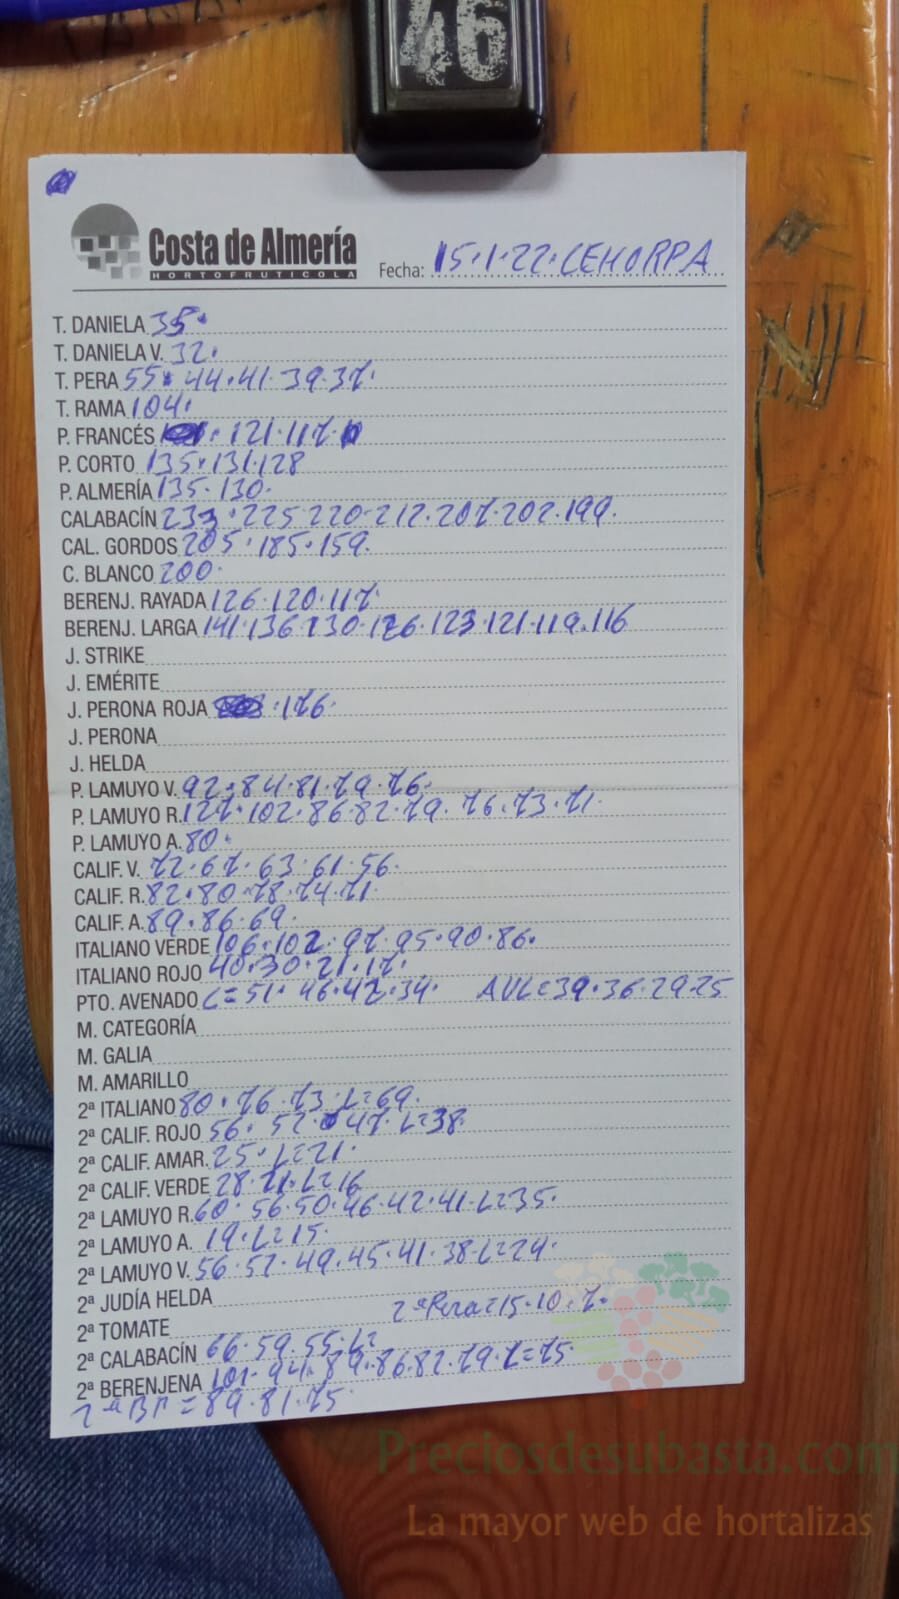 46
Costa de Almería
HORTOFRUTICOLA
Fecha: 15.1.22. CEHORPA
T. DANIELA 35.
T. DANIELA V. 32.
T. PERA 55. 44. 41. 39. 37.
T. RAMA 104.
P. FRANCÉS . 121. 117.
P. CORTO 135. 131. 128
P. ALMERÍA 135. 130.
CALABACÍN 233. 225 220. 212. 207. 202. 199.
CAL. GORDOS 205. 185. 159.
C. BLANCO 200.
BERENJ. RAYADA 126. 120. 117.
BERENJ. LARGA 141. 136. 130. 126. 123. 121. 119. 116
J. STRIKE
J. EMÉRITE
J. PERONA ROJA . 176.
J. PERONA
J. HELDA
P. LAMUYO V. 92. 84. 81. 79. 76.
P. LAMUYO R. 127. 102. 86. 82. 79. 76. 73. 71.
P. LAMUYO A. 80.
CALIF. V. 72. 67. 63. 61. 56.
CALIF. R. 82. 80. 78. 74. 71.
CALIF. A. 89. 86. 69.
ITALIANO VERDE 106. 102. 97. 95. 90. 86.
ITALIANO ROJO 40. 30. 21. 17.
PTO. AVENADO C= 51. 46. 42. 34. AVL= 39. 36. 29. 25
M. CATEGORÍA
M. GALIA
M. AMARILLO
2ª ITALIANO 80. 76. 73. L= 69.
2ª CALIF. ROJO 56. 52. 47. L= 38.
2ª CALIF. AMAR. 25. L= 21.
2ª CALIF. VERDE 28. 21. L= 16
2ª LAMUYO R. 60. 56. 50. 46. 42. 41. L= 35.
2ª LAMUYO A. 19. L= 15.
2ª LAMUYO V. 56. 52. 49. 45. 41. 38. L= 24.
2ª JUDÍA HELDA
2ª TOMATE 2ª Pera= 15. 10. 7.
2ª CALABACÍN 66. 59. 55. L=
2ª BERENJENA 101. 94. 89. 86. 82. 79. L= 75.
2ª BR = 89. 81. 75.
Preciosdesubasta.com
La mayor web de hortalizas